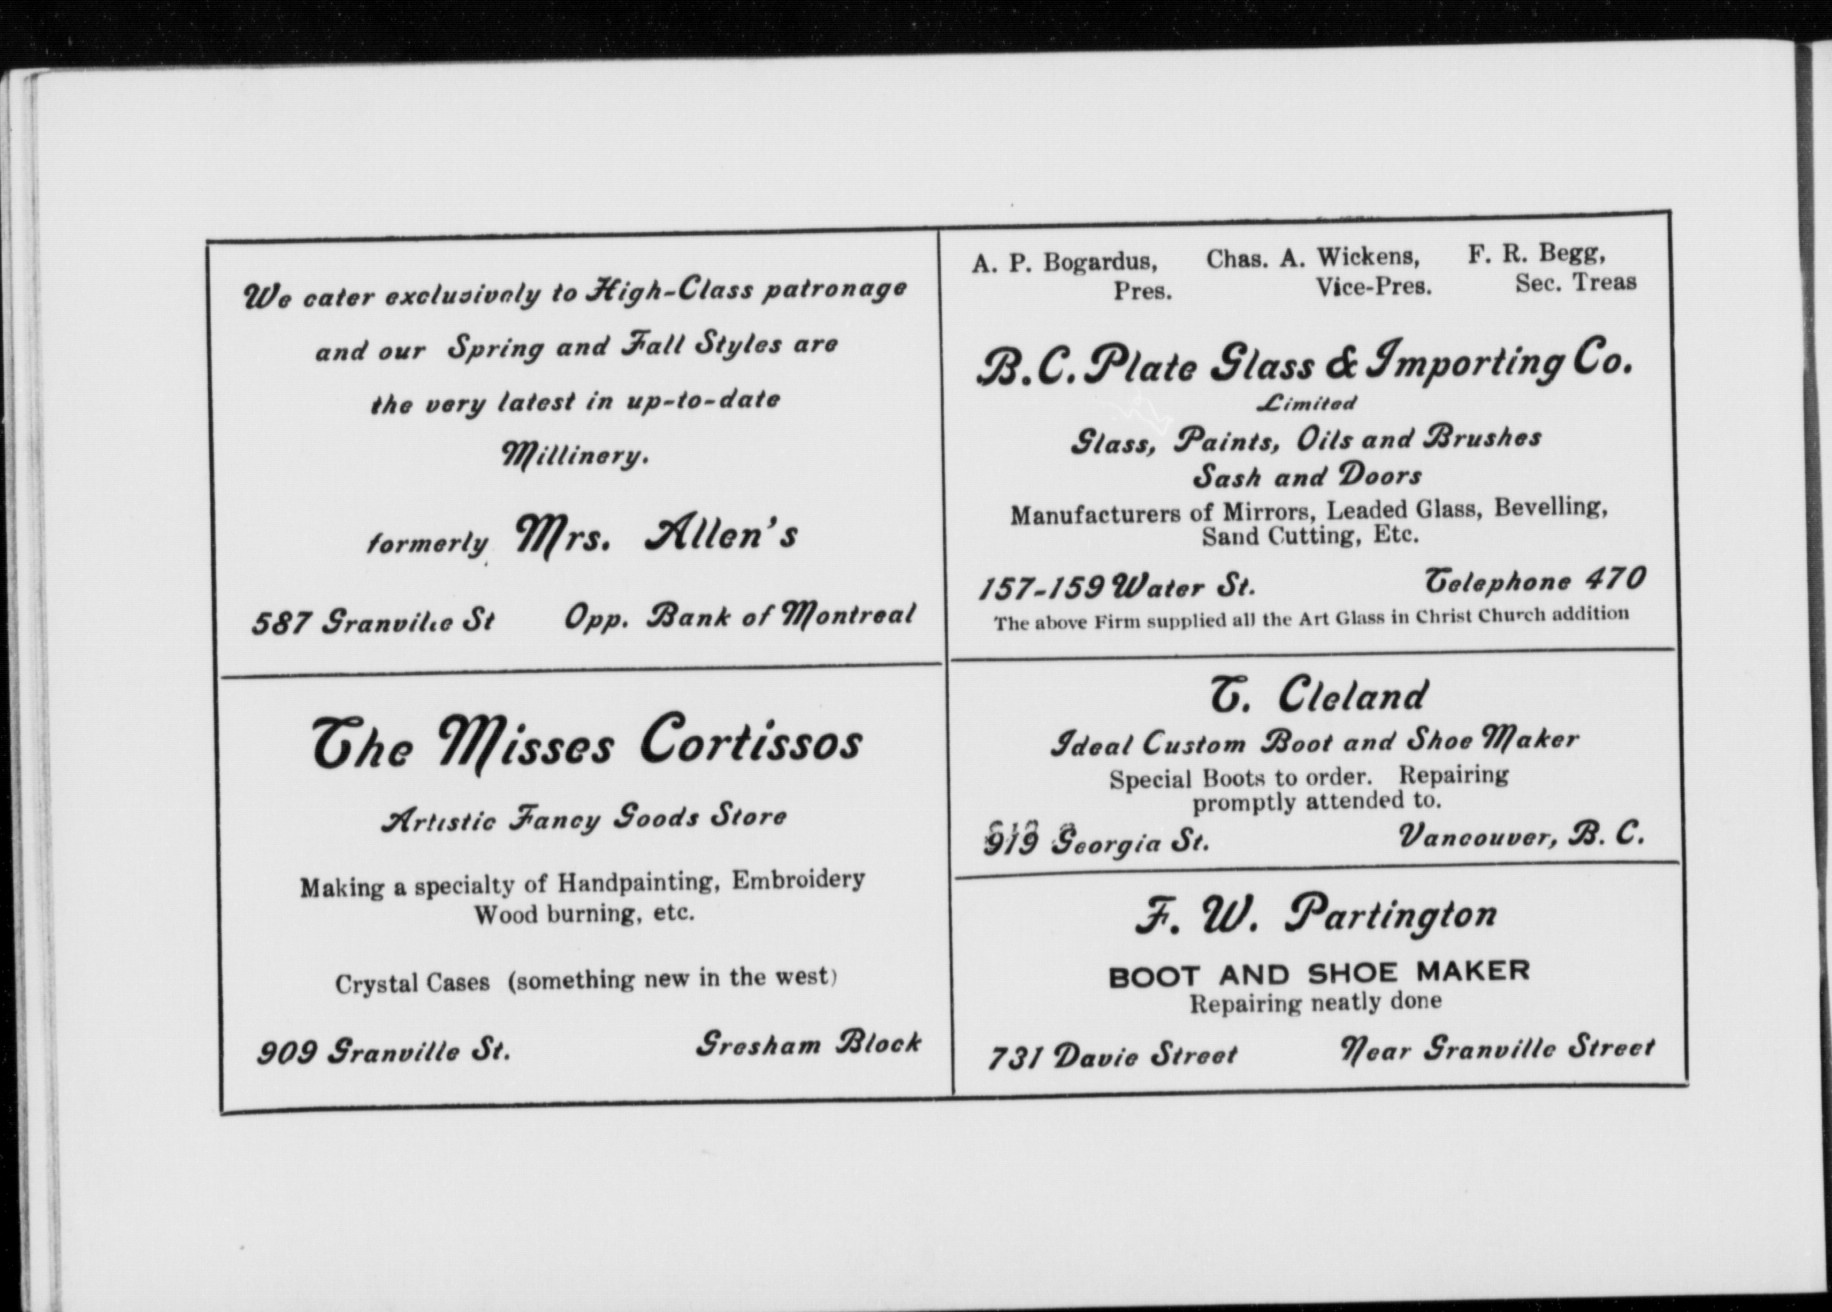 We cater exclusively to High-Class patronage
and our Spring and Fall Styles are
the very latest in up-to-date
Millinery.
formerly Mrs. Allen's
587 Granville St Opp. Bank of Montreal
The Misses Cortissos
Artistic Fancy Goods Store
Making a specialty of Handpainting, Embroidery
Wood burning, etc.
Crystal Cases (something new in the west)
909 Granville St. Gresham Block
A. P. Bogardus, Chas. A. Wickens, F. R. Begg,
Pres. Vice-Pres. Sec. Treas
B.C. Plate Glass & Importing Co.
Limited
Glass, Paints, Oils and Brushes
Sash and Doors
Manufacturers of Mirrors, Leaded Glass, Bevelling,
Sand Cutting, Etc.
157-159 Water St. Telephone 470
The above Firm supplied all the Art Glass in Christ Church addition
T. Cleland
Ideal Custom Boot and Shoe Maker
Special Boots to order. Repairing
promptly attended to.
919 Georgia St. Vancouver, B. C.
F. W. Partington
BOOT AND SHOE MAKER
Repairing neatly done
731 Davie Street Near Granville Street